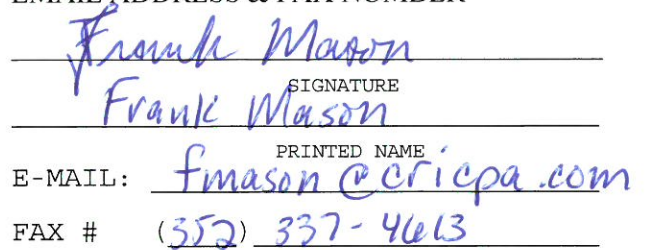 EMAIL ADDRESS & FAX NUMBER
Frank Mason
SIGNATURE
Frank Mason
PRINTED NAME
E-MAIL: fmason@cricpa.com
FAX # (352) 337-4613